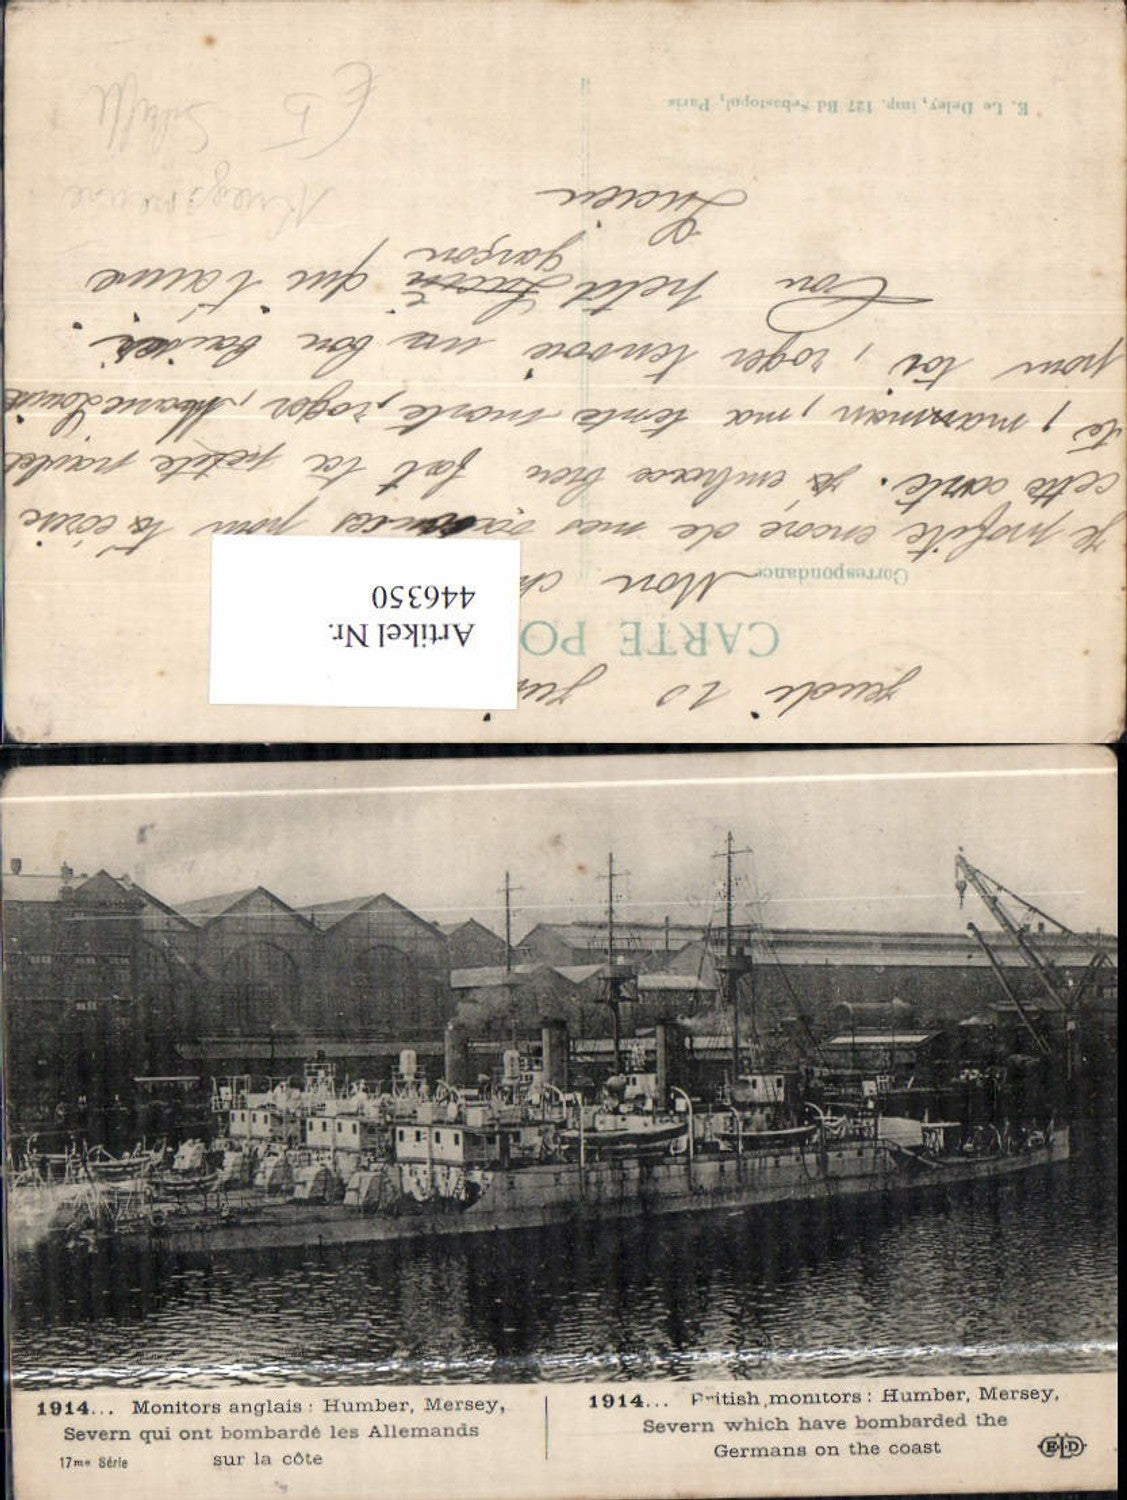 jeudi 10
CARTE PO
Correspondance
Mon ch
je profite encore de mes vacances pour t'écrire
cette carte. je embrasse bien fort ta petite
té, maman, ma tente marte, roger, Marie Louise
pour toi, roger tenvoie un bon baiser
Ton petit garçon qui t'aime
Lucien
E. Le Deley, imp. 127 Bd Sébastopol, Paris
Kriegsmarine
Schiffe
Artikel Nr.
446350
1914... Monitors anglais : Humber, Mersey,
Severn qui ont bombardé les Allemands
sur la côte
17me Série
1914... British monitors : Humber, Mersey,
Severn which have bombarded the
Germans on the coast
ELD